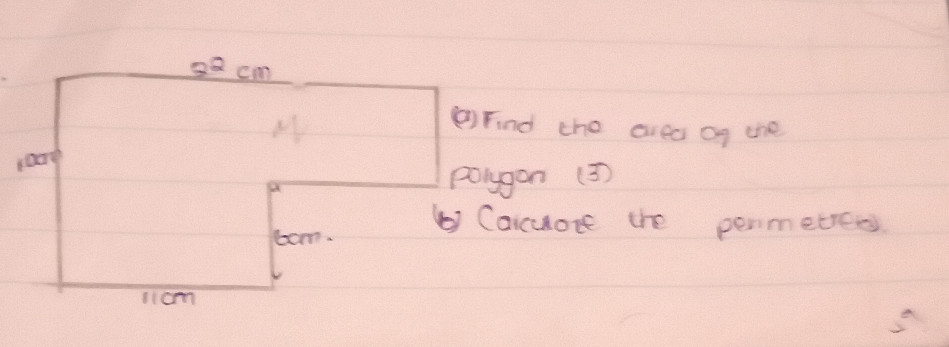 22 cm
M
(a) Find the area of the
10cm
polygon (3)
(b) Calculate the
6cm.
11cm